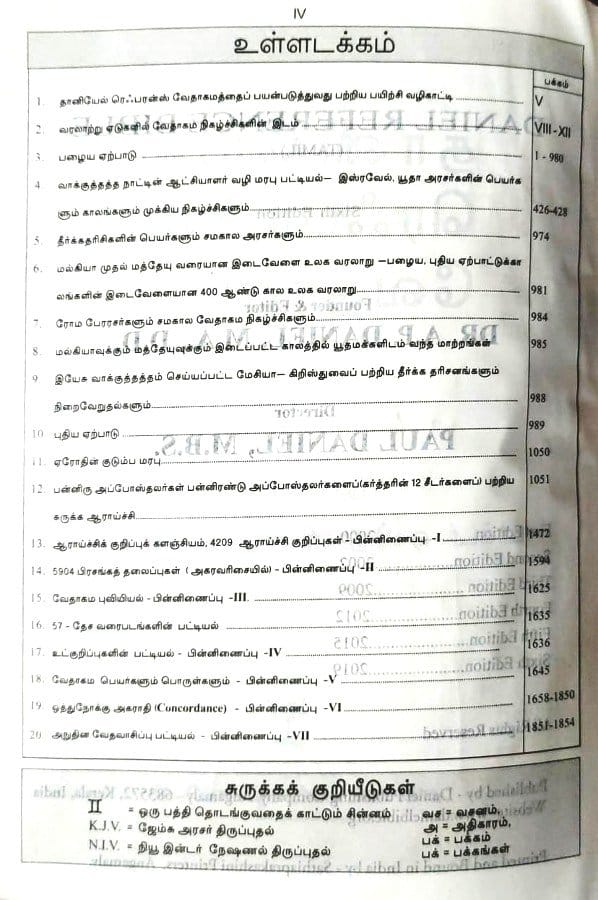 IV
உள்ளடக்கம்
பக்கம்
1. தானியேல் ரெஃபரன்ஸ் வேதாகமத்தைப் பயன்படுத்துவது பற்றிய பயிற்சி வழிகாட்டி V
2. வரலாற்று ஏடுகளில் வேதாகம நிகழ்ச்சிகளின் இடம் VIII-XII
3. பழைய ஏற்பாடு 1 - 980
4. வாக்குத்தத்த நாட்டின் ஆட்சியாளர் வழி மரபு பட்டியல்– இஸ்ரவேல், யூதா அரசர்களின் பெயர்க
ளும் காலங்களும் முக்கிய நிகழ்ச்சிகளும் 426-428
5. தீர்க்கதரிசிகளின் பெயர்களும் சமகால அரசர்களும் 974
6. மல்கியா முதல் மத்தேயு வரையான இடைவேளை உலக வரலாறு –பழைய, புதிய ஏற்பாட்டுக்கா
லங்களின் இடைவேளையான 400 ஆண்டு கால உலக வரலாறு 981
7. ரோம பேரரசர்களும் சமகால வேதாகம நிகழ்ச்சிகளும் 984
8. மல்கியாவுக்கும் மத்தேயுவுக்கும் இடைப்பட்ட காலத்தில் யூதமக்களிடம் வந்த மாற்றங்கள் 985
9 இயேசு வாக்குத்தத்தம் செய்யப்பட்ட மேசியா– கிறிஸ்துவைப் பற்றிய தீர்க்க தரிசனங்களும்
நிறைவேறுதல்களும் 988
10 புதிய ஏற்பாடு 989
11. ஏரோதின் குடும்ப மரபு 1050
12. பன்னிரு அப்போஸ்தலர்கள் பன்னிரண்டு அப்போஸ்தலர்களைப்(கர்த்தரின் 12 சீடர்களைப்) பற்றிய 1051
சுருக்க ஆராய்ச்சி
13. ஆராய்ச்சிக் குறிப்புக் களஞ்சியம், 4209 ஆராய்ச்சி குறிப்புகள் - பின்னிணைப்பு -I 1472
14. 5904 பிரசங்கத் தலைப்புகள் (அகரவரிசையில்) - பின்னிணைப்பு -II 1594
15. வேதாகம புவியியல் - பின்னிணைப்பு -III 1625
16. 57 - தேச வரைபடங்களின் பட்டியல் 1635
17. உட்குறிப்புகளின் பட்டியல் - பின்னிணைப்பு -IV 1636
18. வேதாகம பெயர்களும் பொருள்களும் - பின்னிணைப்பு -V 1645
19. ஒத்துநோக்கு அகராதி (Concordance) - பின்னிணைப்பு -VI 1658-1850
20. அறுதின வேதவாசிப்பு பட்டியல் - பின்னிணைப்பு -VII 1851-1854
சுருக்கக் குறியீடுகள்
= ஒரு பத்தி தொடங்குவதைக் காட்டும் சின்னம் வச = வசனம்,
K.J.V. = ஜேம்சு அரசர் திருப்புதல் அ = அதிகாரம்,
N.I.V. = நியூ இன்டர் நேஷணல் திருப்புதல் பக் = பக்கம்
பக் = பக்கங்கள்